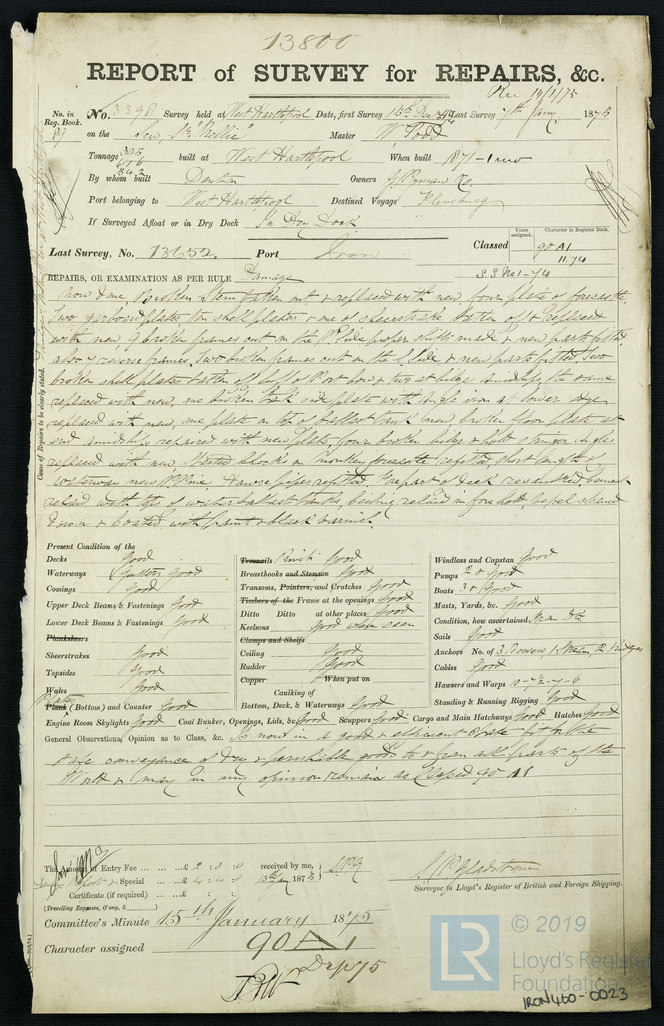 13800
REPORT of SURVEY for REPAIRS, &c.
Rec 14/1/75
No. in Reg. Book.
89
No. 3398 Survey held at West Hartlepool Date, first Survey 15th Dec 74 Last Survey 7th Jany 1875
on the Screw Str "Nellie" Master W. Todd
Tonnage built at West Hartlepool When built 1871-1 mo
By whom built Denton Owners
Port belonging to West Hartlepool Destined Voyage Flensburg
If Surveyed Afloat or in Dry Dock In Dry Dock
Years assigned. Character in Register Book.
Last Survey, No. 13652 Port Iron Classed 90 A1
11.74
S.S. No 1-74
REPAIRS, OR EXAMINATION AS PER RULE Damage
Cause of Repairs to be clearly stated.
Now done, Broken Stem taken out & replaced with new, four plates of forefoot,
two garboard plates ten shell plates & one of sheerstrake taken off & replaced
with new, 9 broken frames cut on the P. side proper shifts made & new parts fitted,
also 4 reverse frames, two broken frames cut on the S. side & new parts fitted. Two
broken shell plates taken off of Port bow & two at bilge amidships the same
replaced with new, one broken end plate with angle iron at lower edge
replaced with new, one plate on top of ballast tank new broken floor plate at
end amidships repaired with new plate, four broken bilge & hold stringer angles
replaced with new, refitted, short length of
waterway new P. Pine, Hawse pipes refitted & part of deck recaulked, Cement
relaid with tops of waterballast tanks, ceiling relaid in fore hold, vessel cleaned
down & coated with paint & black varnish.
Present Condition of the
Decks Good
Waterways Gutters Good
Comings Good
Upper Deck Beams & Fastenings Good
Lower Deck Beams & Fastenings Good
Planksheers
Sheerstrakes Good
Topsides Good
Wales Good
Plates
Plank (Bottom) and Counter Good
Engine Room Skylights Good Coal Bunker, Openings, Lids, &c. Good Scuppers Good Cargo and Main Hatchways Good Hatches Good
Treenails Rivets Good
Breasthooks and Stemson Good
Transoms, Pointers, and Crutches Good
Timbers of the Frame at the openings Good
Ditto Ditto at other places Good
Keelsons Good when seen
Clamps and Shelfs
Ceiling Good
Rudder Good
Copper When put on
Caulking of
Bottom, Deck, & Waterways Good
Windlass and Capstan Good
Pumps 2 & Good
Boats 3 & Good
Masts, Yards, &c. Good
Condition, how ascertained
Sails Good
Anchors No. of 3 Bowers 1 Stream 2 Kedges
Cables Good
Hawsers and Warps
Standing & Running Rigging Good
General Observations, Opinion as to Class, &c. Is now in a good & efficient state fit for the
safe conveyance of dry & perishable goods to & from all parts of the
World & may in my opinion remain as Classed 90 A1
The Amount of Entry Fee ... ... £ 2 : 0 : 0 received by me,
Special ... ... £ 4 : 4 : 0 1875
Certificate (if required) ... £ : :
(Travelling Expenses, if any, £ )
Surveyor to Lloyd's Register of British and Foreign Shipping.
Committee's Minute 15th January 1875
Character assigned 90 A 1
© 2019
LR
Lloyd's Register
Foundation
IRON460-0023